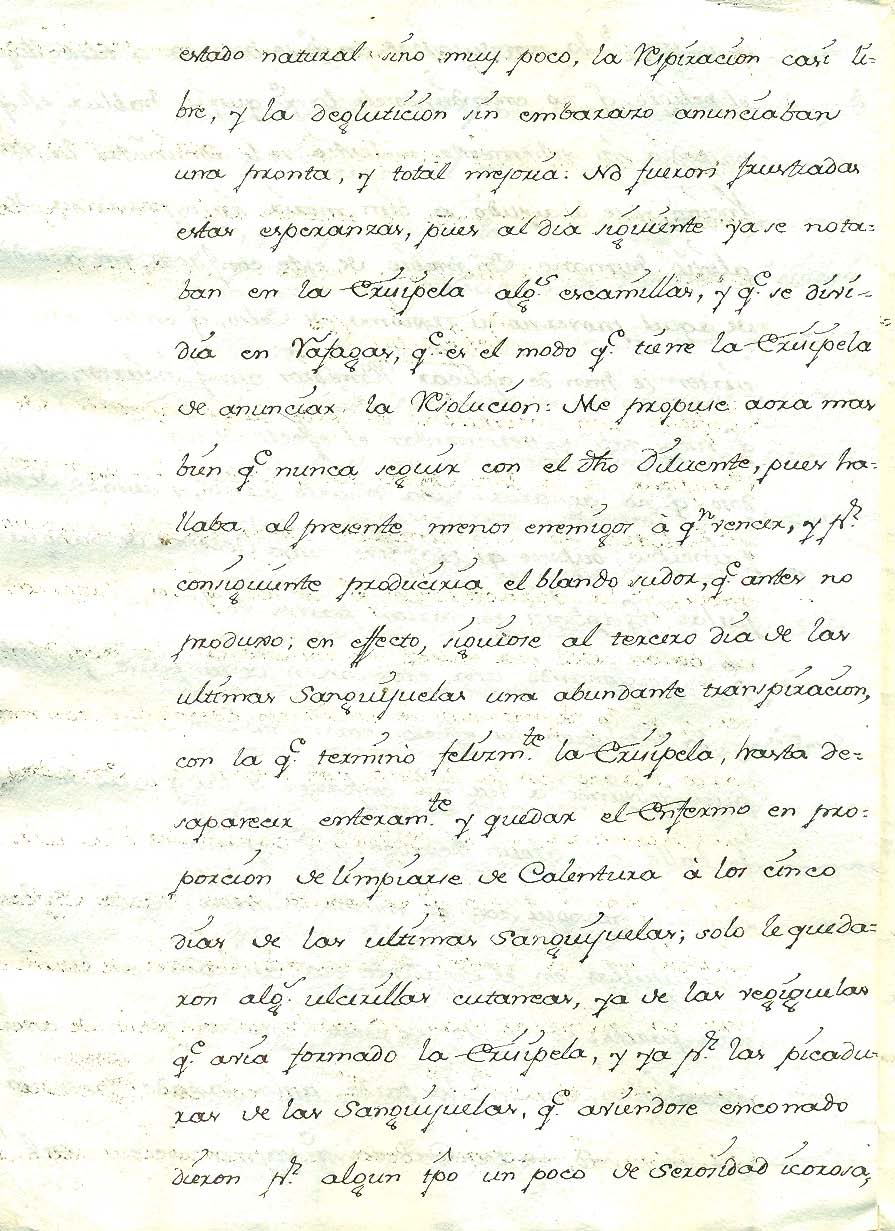 estado natural sino muy poco, la Respiracion casi li-
bre, y la degluticion sin embarazo anunciaban
una pronta, y total mejoria: No fueron frustradas
estas esperanzas, pues al dia siguiente ya se nota-
ban en la Erisipela algs. escamillas, y qe. se divi-
dia en Rafagas, qe. es el modo qe. tiene la Erisipela
de anunciar la Resolucion: Me propuse aora mas
bien qe. nunca seguir con el dho Diluente, pues ha-
llaba al presente menos enemigos à qn. vencer, y pr.
consiguiente produciria el blando sudor, qe. antes no
produxo; en effecto, siguiose al tercero dia de las
ultimas Sanguijuelas una abundante transpiracion,
con la qe. terminò felizmte. la Erisipela, hasta de-
saparecer enteramte. y quedar el Enfermo en pro-
porcion de limpiarse de Calentura à los cinco
dias de las ultimas Sanguijuelas; solo le queda-
ron algs. ulcerillas cutaneas, ya de las vegiguelas
qe. avia formado la Erisipela, y ya pr. las picadu-
ras de las Sanguijuelas, qe. aviendose enconado
dieron pr. algun tpo un poco de Serosidad icorosa,